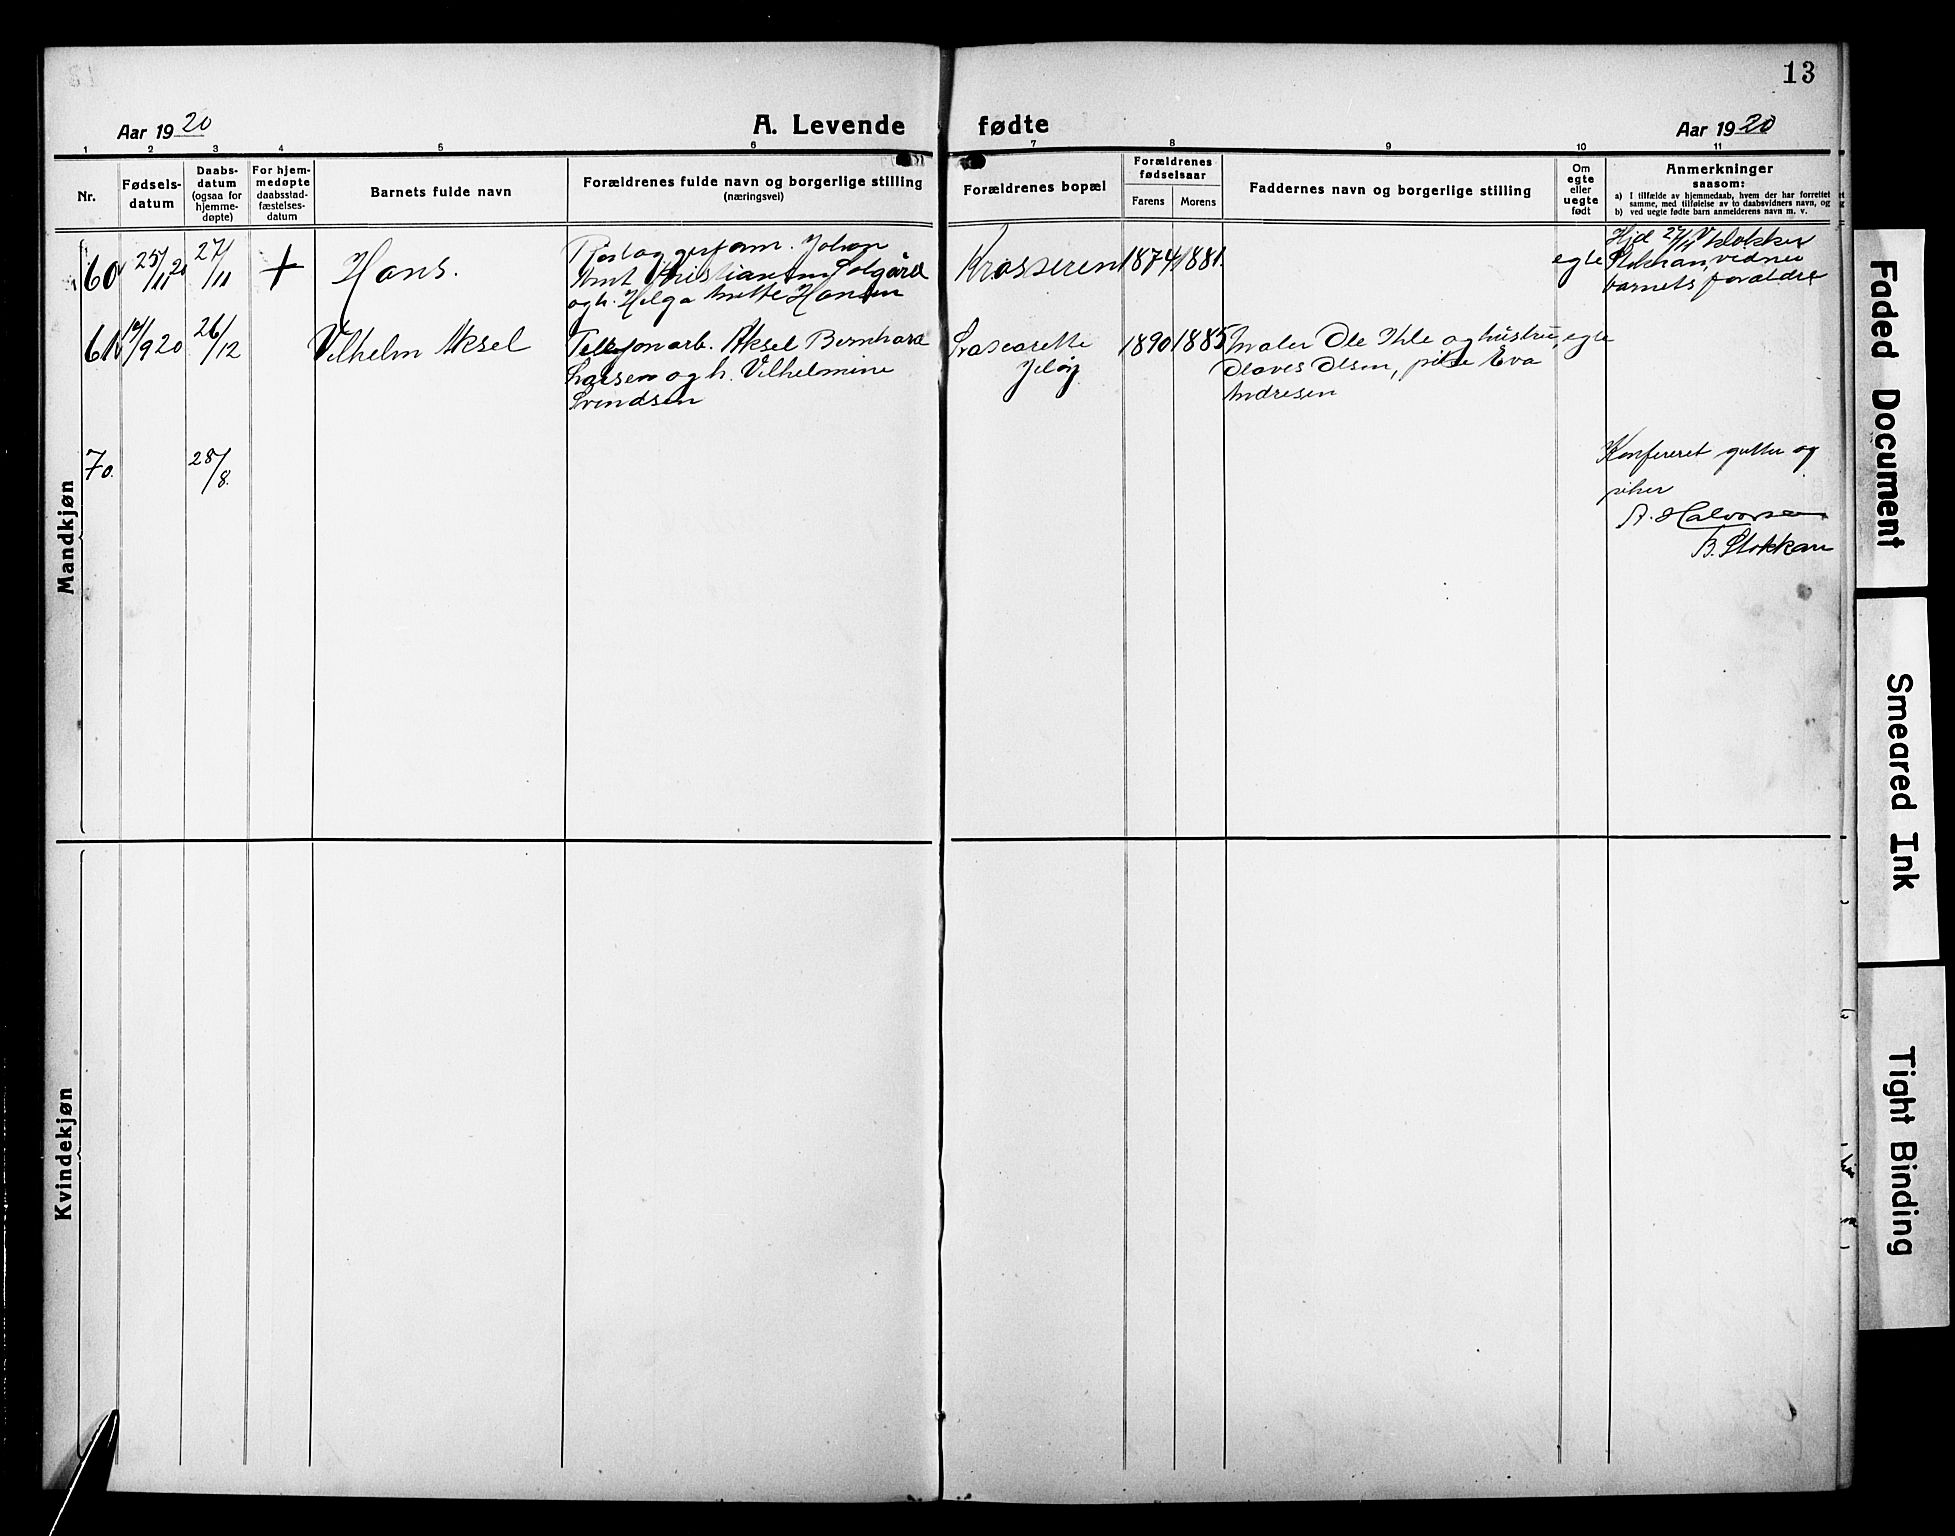 13
Aar 1920
A. Levende fødte
Aar 1920
1 2 3 4 5 6 7 8 9 10 11
Nr.
Fødselsdatum
Daabsdatum
(ogsaa for
hjemmedøpte)
For hjemmedøpte
daabsstadfæstelsesdatum
Barnets fulde navn
Forældrenes fulde navn og borgerlige stilling
(næringsvei)
Forældrenes bopæl
Forældrenes
fødselsaar
Farens
Morens
Faddernes navn og borgerlige stilling
Om
egte
eller
uegte
født
Anmerkninger
saasom:
a) I tilfælde av hjemmedaab, hvem der har forrettet
samme, med tilføielse av to daabsvidners navn, og
b) ved uegte fødte barn anmelderens navn m. v.
Mandkjøn
60
25/11 20
27/11
+
Hans.
Johan
Kristiansen Solgård
og h. Helga Anette Hansen
1874
1881.
egte
Hjd 27/11 v klokker
Stokkan, vidner
barnets forældre
61
12/9 20
26/12
Vilhelm Aksel
Telefonarb. Aksel Bernhard
Larsen og h. Vilhelmine
Svendsen
Jeløy
1890
1885
Maler Ole Ihle og hustru,
Olsen, pike Eva
Andresen
egte
70.
28/8.
Konfereret gutter og
piker
A. Halvorsen
B. Stokkan
Kvindekjøn
Faded Document
Smeared Ink
Tight Binding